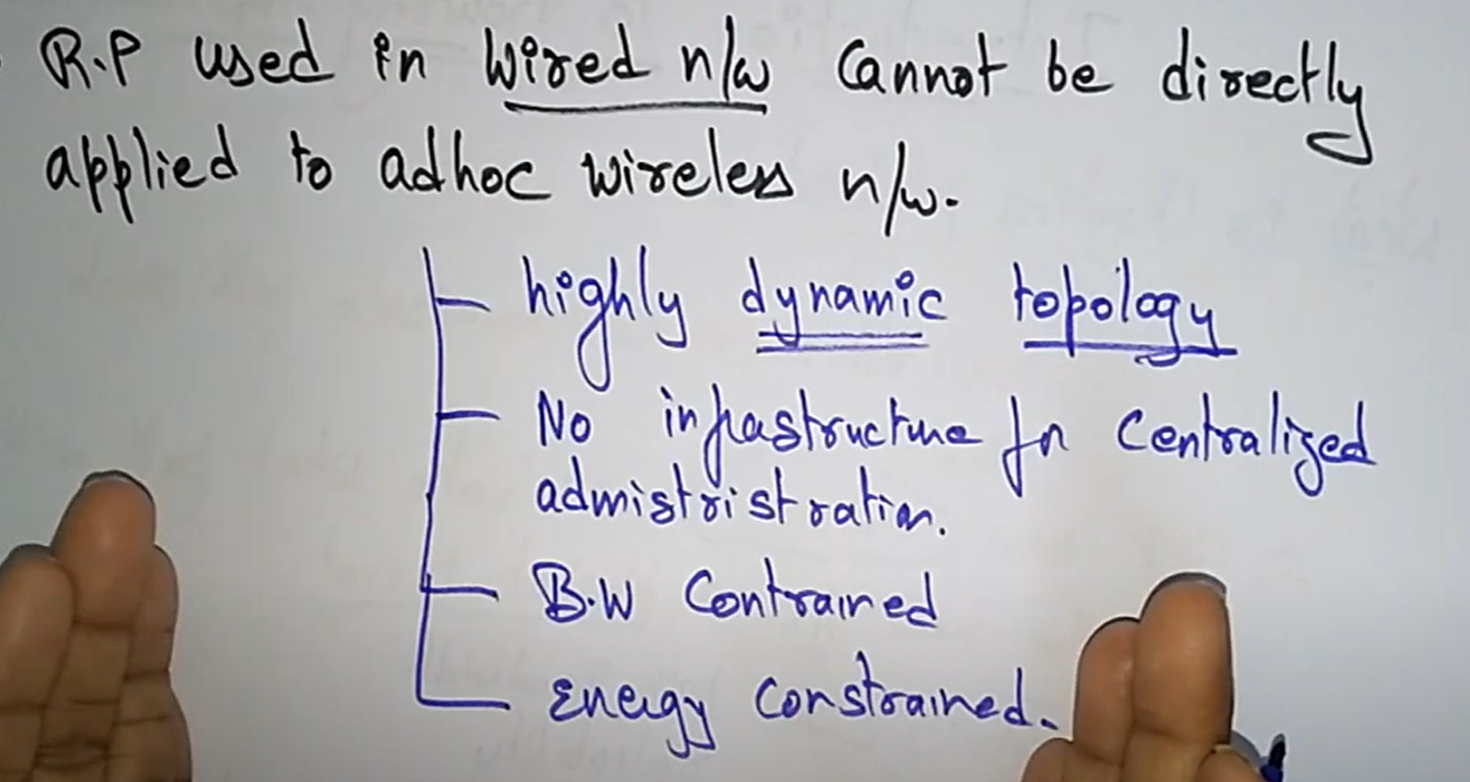 R.P used in wired n/w cannot be directly
applied to adhoc wireless n/w.
highly dynamic topology
No infrastructure for Centralized
admistristration.
B.W Contrained
Energy constrained.